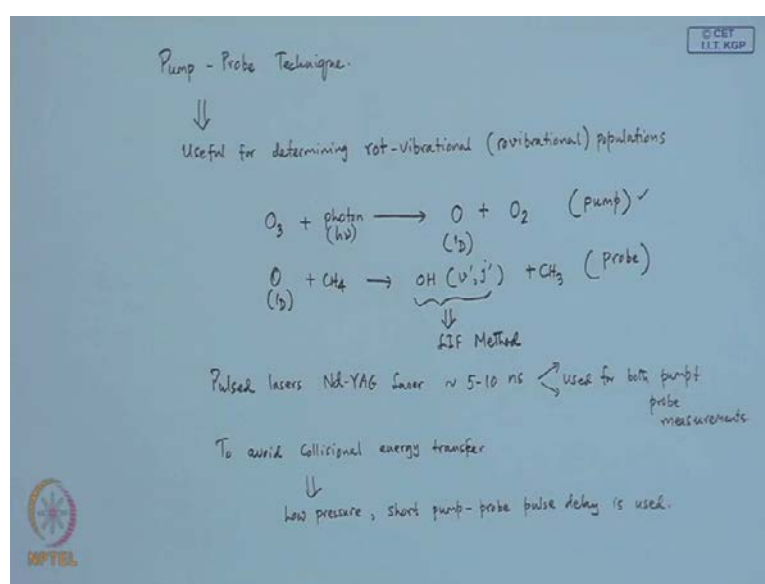 © CET
I.I.T. KGP
Pump - Probe Technique.
⇓
Useful for determining rot-vibrational (rovibrational) populations
O₃ + photon (hν) ⟶ O (¹D) + O₂ (pump) ✓
O (¹D) + CH₄ → OH (v', j') + CH₃ (probe)
⇓
LIF Method
Pulsed lasers Nd-YAG laser ~ 5-10 ns used for both pump +
probe
measurements
To avoid collisional energy transfer
⇓
Low pressure, short pump-probe pulse delay is used.
NPTEL